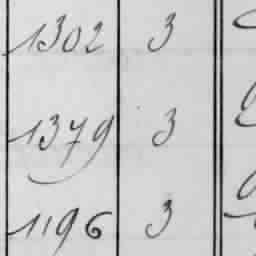 1302 3
1379 3
1196 3